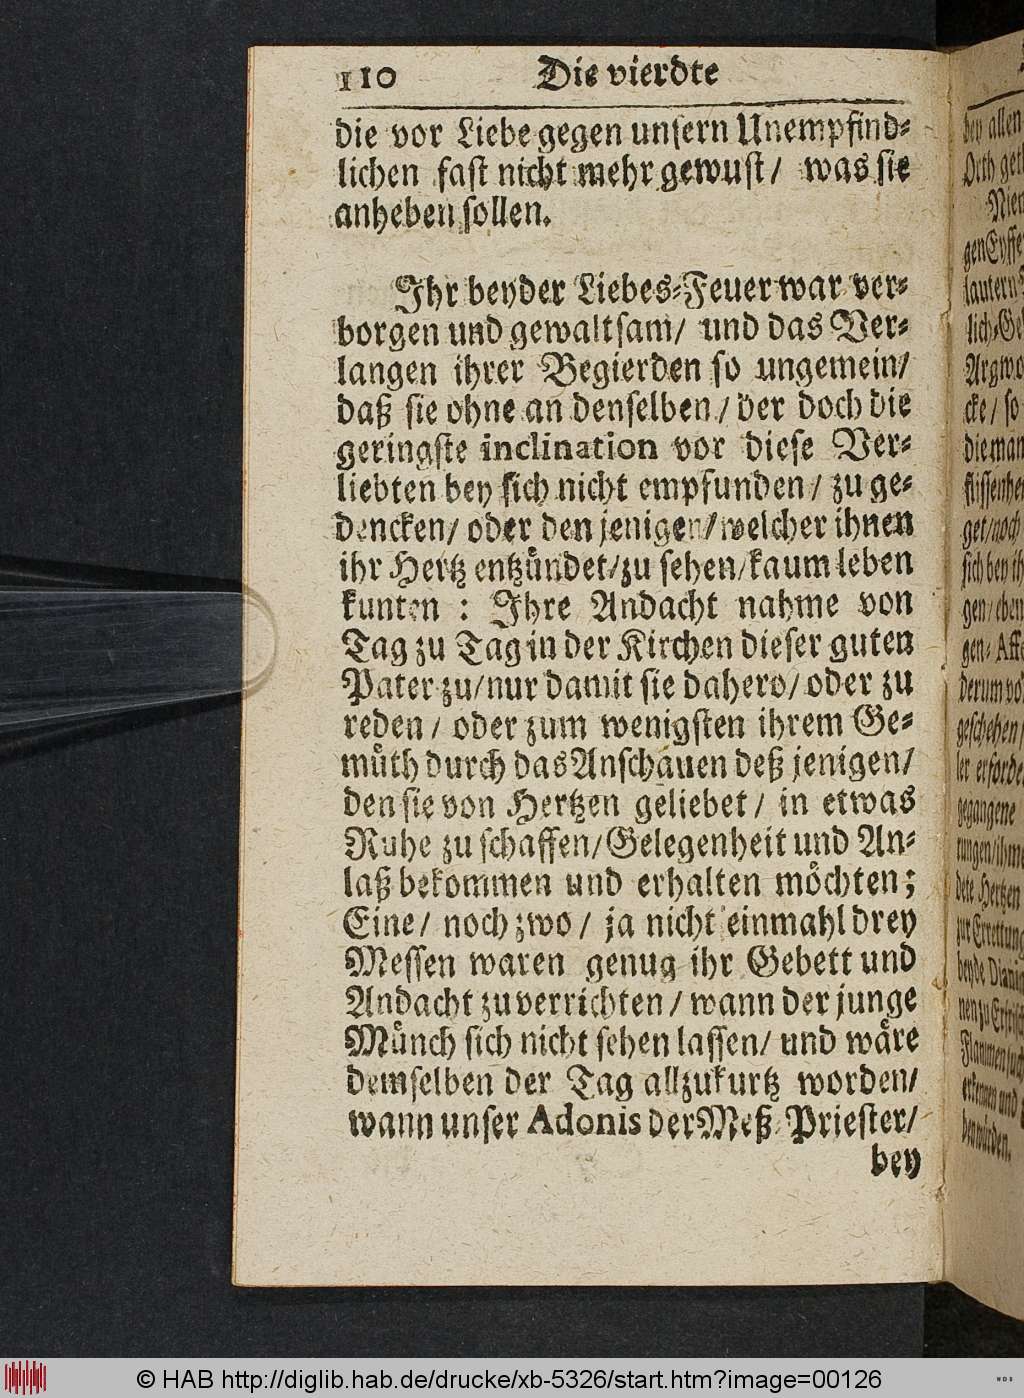 110 Die vierdte
die vor Liebe gegen unsern Unempfind-
lichen fast nicht mehr gewust / was sie
anheben sollen.
Ihr beyder Liebes-Feuer war ver-
borgen und gewaltsam / und das Ver-
langen ihrer Begierden so ungemein /
daß sie ohne an denselben / der doch die
geringste inclination vor diese Ver-
liebten bey sich nicht empfunden / zu ge-
dencken / oder den jenigen / welcher ihnen
ihr Hertz entzündet / zu sehen / kaum leben
kunten : Ihre Andacht nahme von
Tag zu Tag in der Kirchen dieser guten
Pater zu / nur damit sie dahero / oder zu
reden / oder zum wenigsten ihrem Ge-
müth durch das Anschauen deß jenigen /
den sie von Hertzen geliebet / in etwas
Ruhe zu schaffen / Gelegenheit und An-
laß bekommen und erhalten möchten;
Eine / noch zwo / ja nicht einmahl drey
Messen waren genug ihr Gebett und
Andacht zu verrichten / wann der junge
Münch sich nicht sehen lassen / und wäre
demselben der Tag allzukurtz worden /
wann unser Adonis der Meß Priester /
bey
bey allen
Nier
lich-Ge
Argwo
cke / so
die man
get / noch
sich bey ih
gen / eben
gen- Affe
derum vo
geschehen /
ler erforde
gegangene
rungen / ihm
dete Hertzen
zur Errettung
erkennen und
© HAB http://diglib.hab.de/drucke/xb-5326/start.htm?image=00126